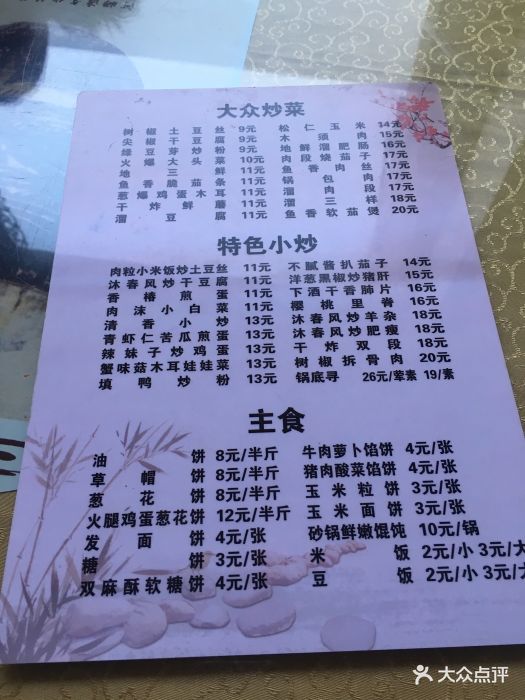 大众炒菜
树椒土豆丝 9元
尖椒干豆腐 9元
绿豆芽炒粉 9元
火爆大头菜 10元
地三鲜 11元
鱼香脆茄条 11元
葱爆鸡蛋木耳 11元
干炸鲜蘑 11元
溜豆腐 11元
松仁玉米 14元
木须肉 15元
地鲜溜肥肠 16元
肉段烧茄子 17元
鱼香肉丝 17元
锅包肉 17元
溜肉段 17元
溜三样 18元
鱼香软茄煲 20元
特色小炒
肉粒小米饭炒土豆丝 11元
沐春风炒干豆腐 11元
香椿煎蛋 11元
肉沫小白菜 11元
清香小炒 13元
青虾仁苦瓜煎蛋 13元
辣妹子炒鸡蛋 13元
蟹味菇木耳娃娃菜 13元
填鸭炒粉 13元
不腻酱扒茄子 14元
洋葱黑椒炒猪肝 15元
下酒干香肺片 16元
樱桃里脊 16元
沐春风炒羊杂 18元
沐春风炒肥瘦 18元
干炸双段 18元
树椒拆骨肉 20元
锅底寻 26元/荤素 19/素
主食
油饼 8元/半斤
草帽饼 8元/半斤
葱花饼 8元/半斤
火腿鸡蛋葱花饼 12元/半斤
发面饼 4元/张
糖饼 3元/张
双麻酥软糖饼 4元/张
牛肉萝卜馅饼 4元/张
猪肉酸菜馅饼 4元/张
玉米粒饼 3元/张
玉米面饼 3元/张
砂锅鲜嫩馄饨 10元/锅
米饭 2元/小 3元/大
豆饭 2元/小 3元/大
大众点评